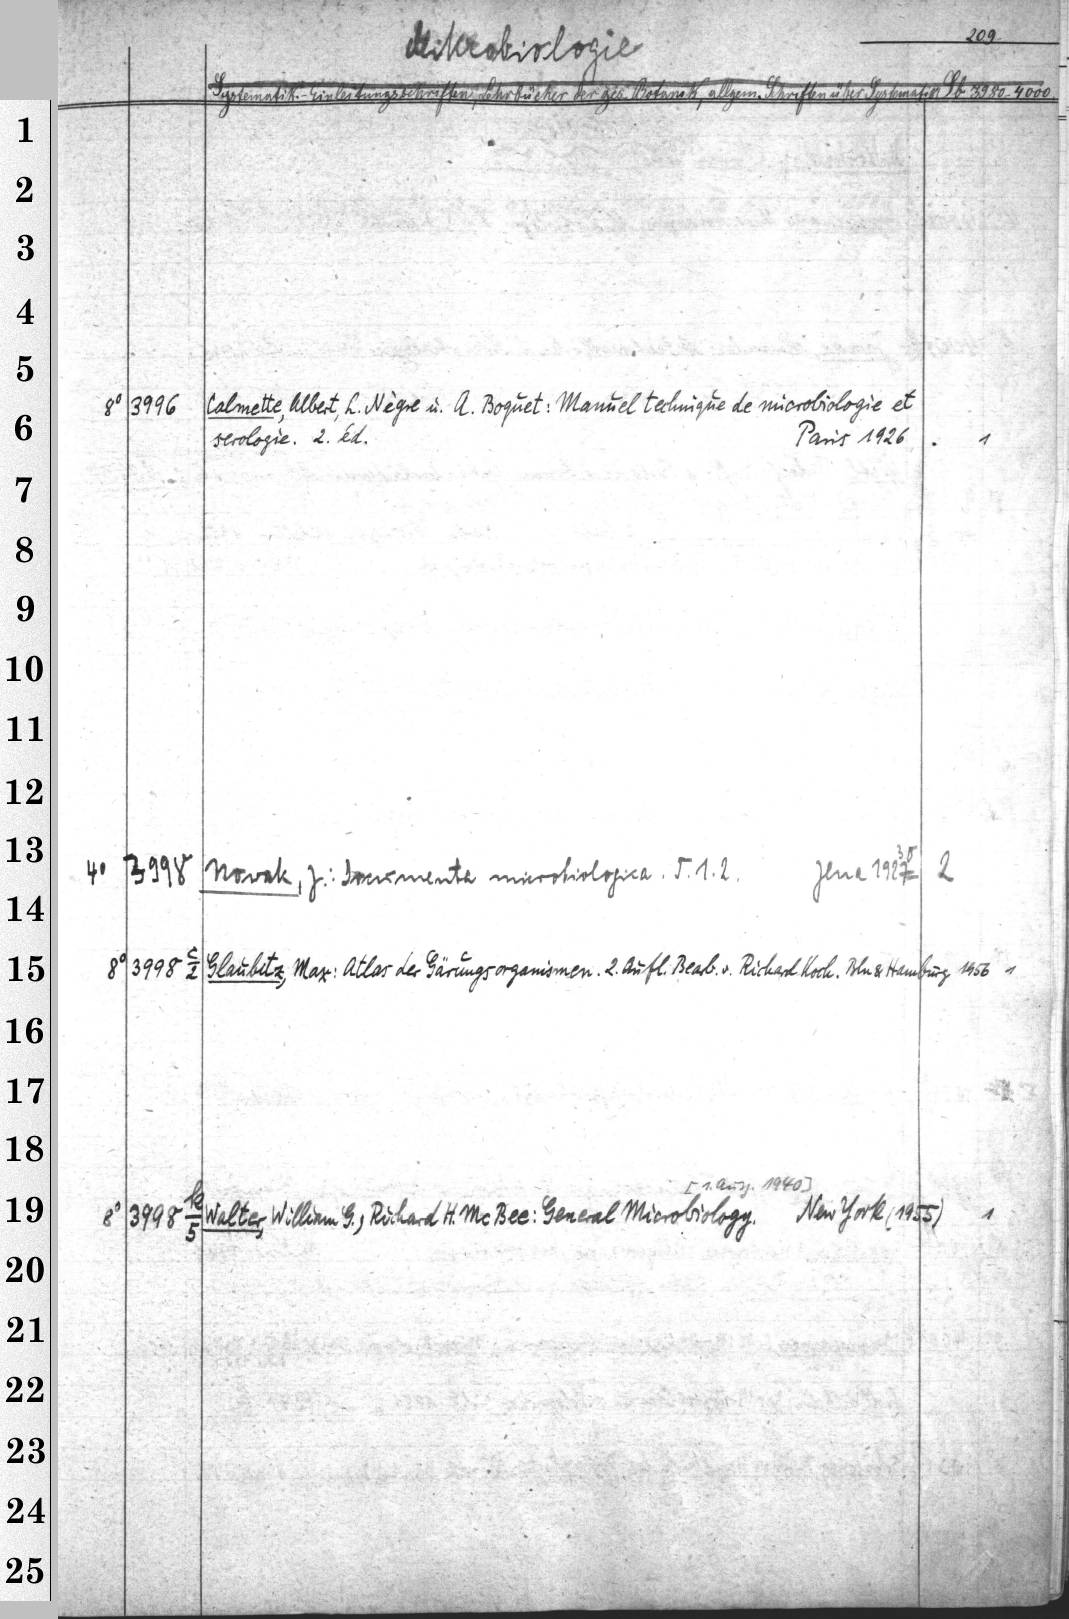 Mikrobiologie
209
Systematik.- Einleitungsschriften, Lehrbücher der ges. Botanik, allgem. Schriften über Systematik Sb 3980-4000
1
2
3
4
5
8° 3996 Calmette, Albert, L. Nègre u. A. Boquet: Manuel technique de microbiologie et
6
serologie. 2. éd. Paris 1926. 1
7
8
9
10
11
12
13
4° 3998 Novak, J.: Documenta microbiologica. T. 1.2. Jena 1927 2
14
15
8° 3998 c/2 Glaubitz, Max: Atlas der Gärungsorganismen. 2. Aufl. Bearb. v. Richard Koch. Bln & Hamburg 1956 1
16
17
18
[1. Ausg. 1940]
19
8° 3998 /5 Walter, William G., Richard H. McBee: General Microbiology. New York (1955) 1
20
21
22
23
24
25